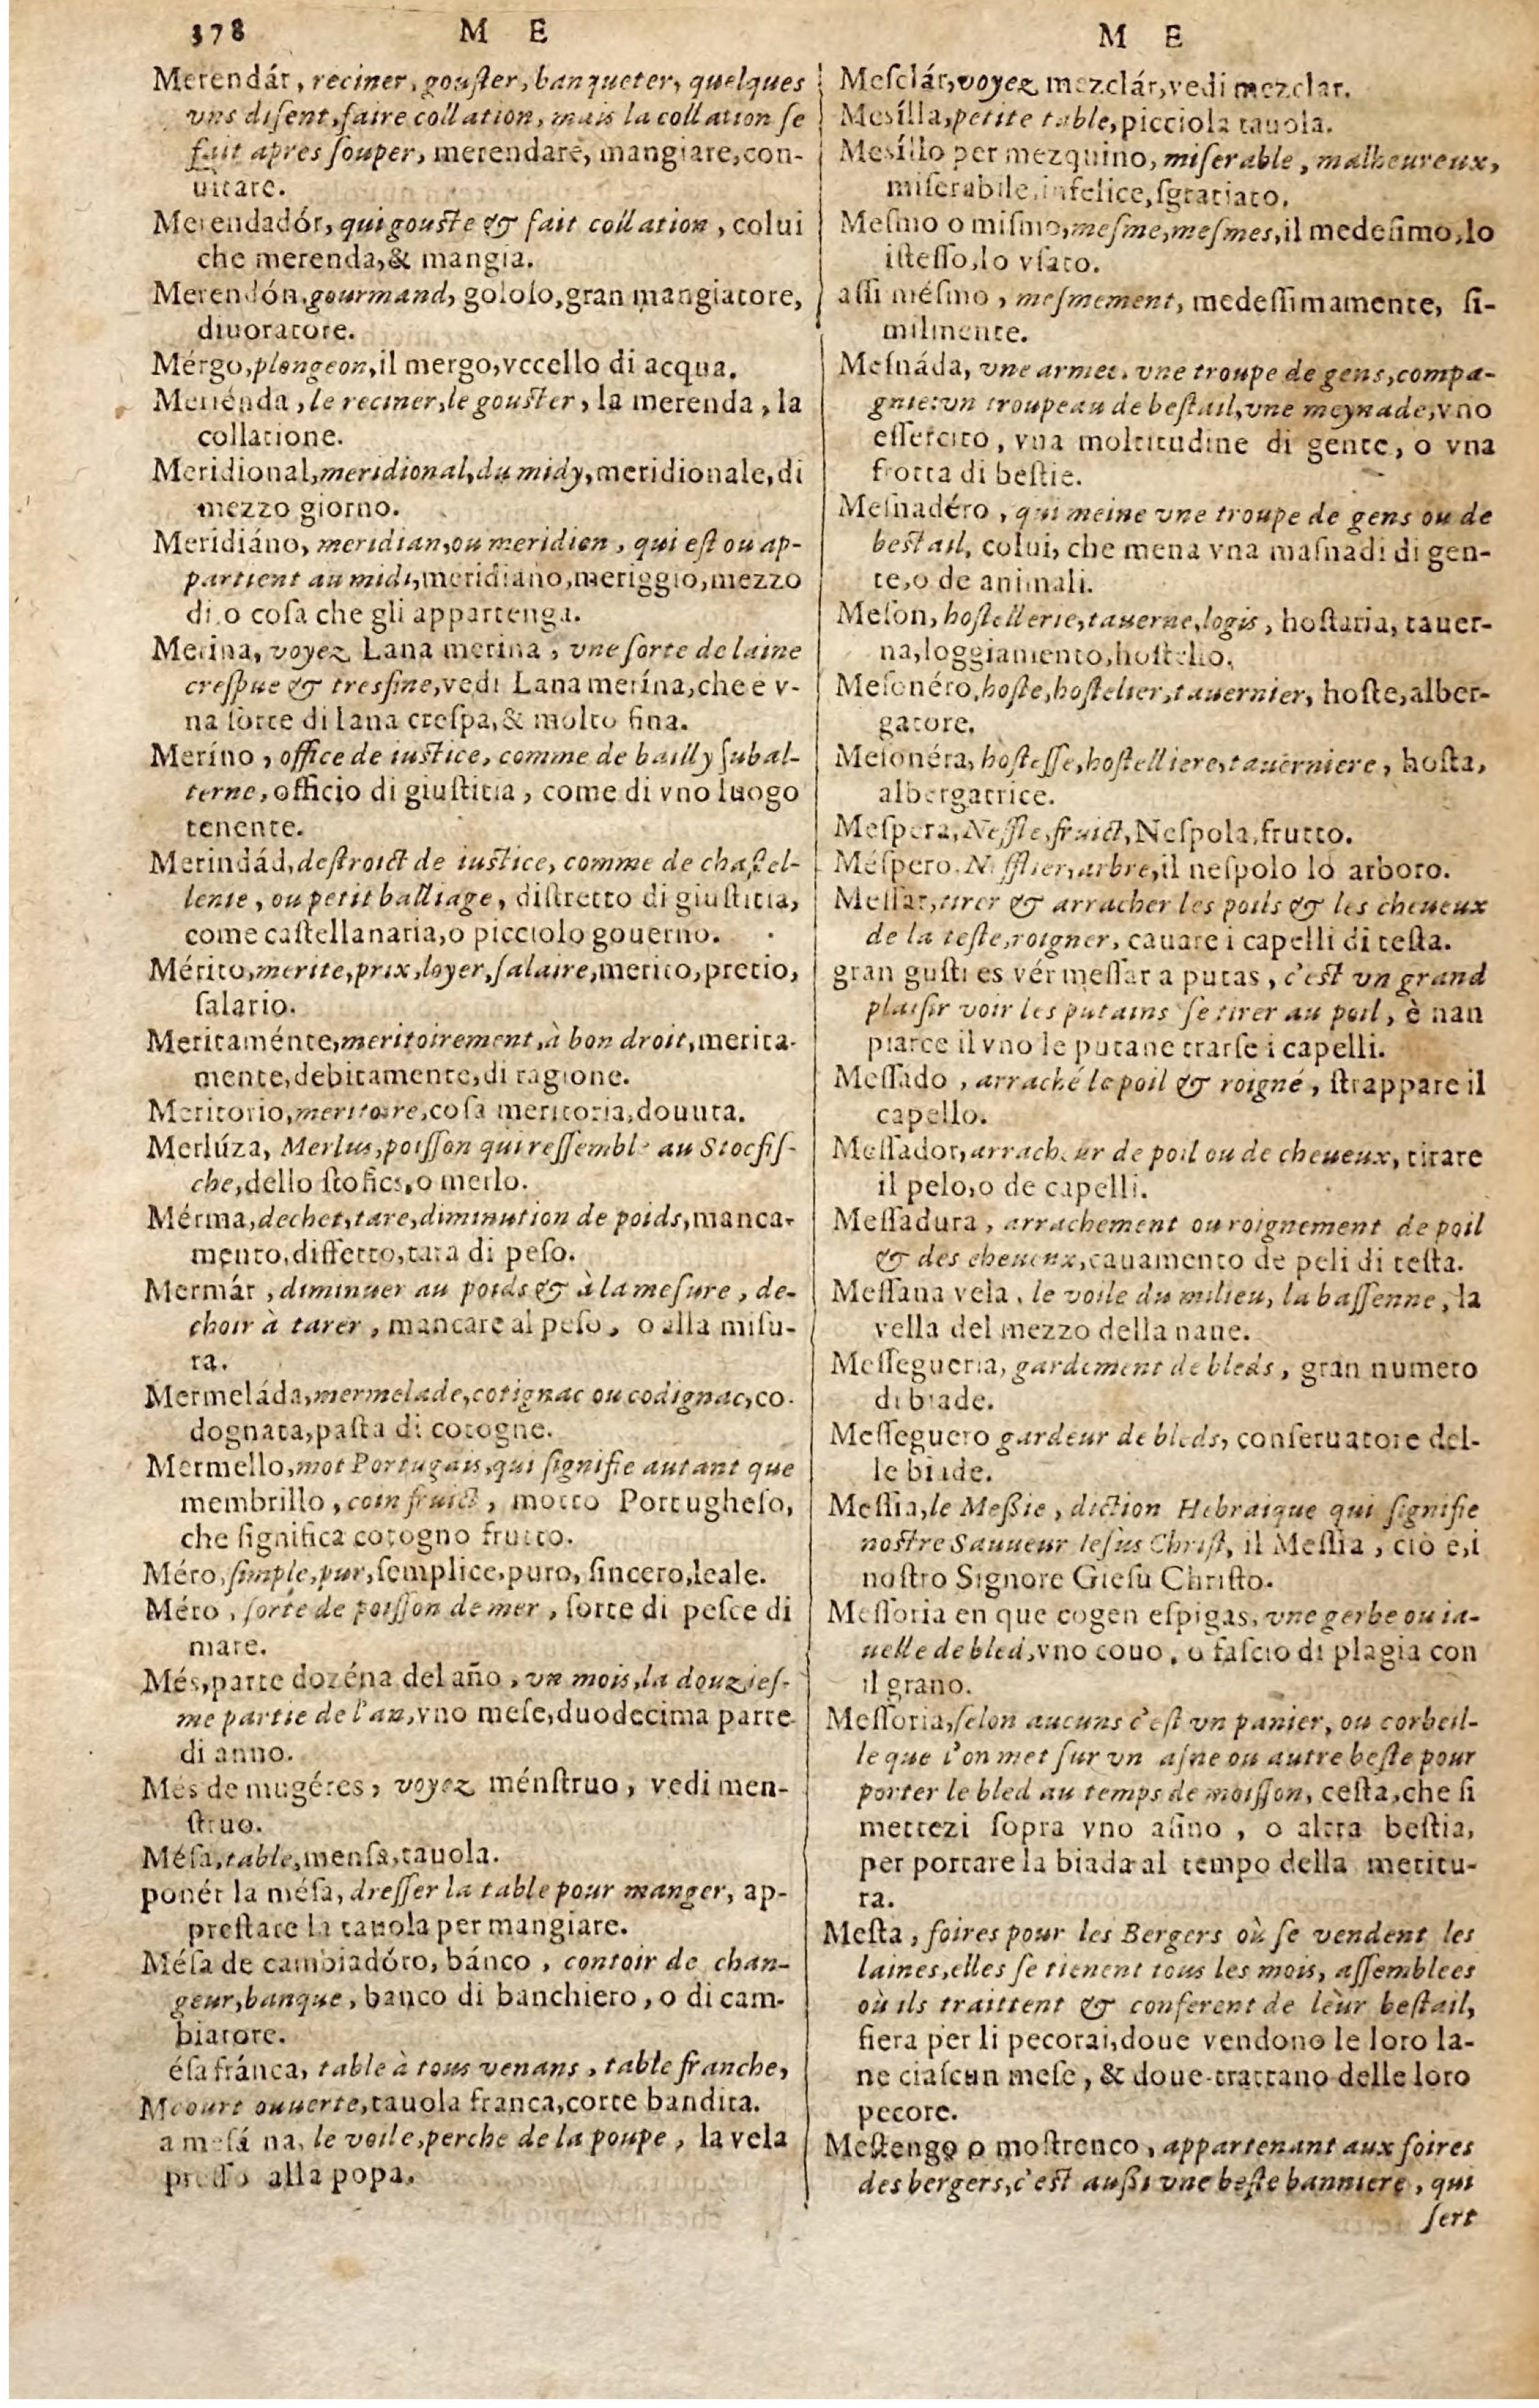 378 M E
Merendár, reciner, gouſter, banqueter, quelques
vns diſent, faire collation, mais la collation ſe
fait apres ſouper, merendare, mangiare, con-
uitare.
Merendadór, qui gouste & fait collation, colui
che merenda, & mangia.
Merendón, gourmand, goloſo, gran mangiatore,
diuoratore.
Mérgo, plongeon, il mergo, vccello di acqua.
Meriénda, le reciner, le gouster, la merenda, la
collatione.
Meridional, meridional, du midy, meridionale, di
mezzo giorno.
Meridiáno, meridian, ou meridien, qui eſt ou ap-
partient au midi, meridiano, meriggio, mezzo
di, o coſa che gli appartenga.
Merina, voyez Lana merina, vne ſorte de laine
creſpue & tresfine, vedi Lana merína, che e v-
na ſorte di lana creſpa, & molto fina.
Meríno, office de iustice, comme de bailly ſubal-
terne, officio di giuſtitia, come di vno luogo
tenente.
Merindád, deſtroict de iustice, comme de chaſtel-
lenie, ou petit balliage, diſtretto di giuſtitia,
come caſtellanaria, o picciolo gouerno.
Mérito, merite, prix, loyer, ſalaire, merito, precio,
ſalario.
Meritaménte, meritoirement, à bon droit, merita-
mente, debitamente, di ragione.
Meritorio, meritoire, coſa meritoria, douuta.
Merlúza, Merlus, poiſſon qui reſſemble au Stocfiſ-
che, dello ſtofics, o merlo.
Mérma, dechet, tare, diminution de poids, manca-
mento, diffetto, tara di peſo.
Mermár, diminuer au poids & à la meſure, de-
choir à tarer, mancare al peſo, o alla miſu-
ra.
Mermeláda, mermelade, cotignac ou codignac, co-
dognata, paſta di cotogne.
Mermello, mot Portugais, qui ſignifie autant que
membrillo, coin fruict, motto Portugheſo,
che ſignifica cotogno frutto.
Méro, ſimple, pur, ſemplice, puro, ſincero, leale.
Méro, ſorte de poiſſon de mer, ſorte di peſce di
mare.
Més, parte dozéna del año, vn mois, la douzieſ-
me partie de l'an, vno meſe, duodecima parte
di anno.
Més de mugéres, voyez ménſtruo, vedi men-
ſtruo.
Méſa, table, menſa, tauola.
ponér la méſa, dreſſer la table pour manger, ap-
preſtare la tauola per mangiare.
Méſa de cambiadóro, bánco, contoir de chan-
geur, banque, banco di banchiero, o di cam-
biatore.
éſa fránca, table à tous venans, table franche,
Mcourt ouuerte, tauola franca, corte bandita.
a meſá na, le voile, perche de la poupe, la vela
preſſo alla popa.
M E
Meſclár, voyez mezclár, vedi mezclar.
Mesílla, petite table, picciola tauola.
Mesíllo per mezquino, miſerable, malheureux,
miſerabile, infelice, ſgratiato.
Meſmo o miſmo, meſme, meſmes, il medeſimo, lo
iſteſſo, lo vſato.
aſſi méſmo, meſmement, medeſſimamente, ſi-
milmente.
Meſnáda, vne armee, vne troupe de gens, compa-
gnie: vn troupeau de beſtail, vne meynade, vno
eſſercito, vna moltitudine di gente, o vna
frotta di beſtie.
Meſnadéro, qui meine vne troupe de gens ou de
bestail, colui, che mena vna maſnadi di gen-
te, o de animali.
Meſon, hoſtellerie, tauerne, logis, hoſtaria, tauer-
na, loggiamento, hoſtello.
Meſonéro, hoſte, hoſtelier, tauernier, hoſte, alber-
gatore.
Meſonéra, hoſteſſe, hoſtelliere, tauerniere, hoſta,
albergatrice.
Meſpera, Neſfle, fruict, Neſpola, frutto.
Méſpero, Neſflier, arbre, il neſpolo lo arboro.
Meſſar, tirer & arracher les poils & les cheueux
de la teſte, roigner, cauare i capelli di teſta.
gran guſti es vér meſſar a putas, c'est vn grand
plaiſir voir les putains ſe tirer au poil, è nan
piarce il vno le putane trarſe i capelli.
Meſſado, arraché le poil & roigné, ſtrappare il
capello.
Meſſador, arracheur de poil ou de cheueux, tirare
il pelo, o de capelli.
Meſſadura, arrachement ou roignement de poil
& des cheueux, cauamento de peli di teſta.
Meſſana vela, le voile du milieu, la baſſenne, la
vella del mezzo della naue.
Meſſegueria, gardement de bleds, gran numero
di biade.
Meſſeguero gardeur de bleds, conſeruatore del-
le biade.
Meſſia, le Meſsie, diction Hebraique qui ſignifie
nostre Sauueur Ieſus Chriſt, il Meſſia, ciò e, i
noſtro Signore Gieſu Chriſto.
Meſſoria en que cogen eſpigas, vne gerbe ou ia-
uelle de bled, vno couo, o faſcio di plagia con
il grano.
Meſſoria, ſelon aucuns c'eſt vn panier, ou corbeil-
le que l'on met ſur vn aſne ou autre beſte pour
porter le bled au temps de moiſſon, ceſta, che ſi
mettezi ſopra vno aſino, o altra beſtia,
per portare la biada al tempo della meritu-
ra.
Meſta, foires pour les Bergers où ſe vendent les
laines, elles ſe tienent tous les mois, aſſemblees
où ils traittent & conferent de leur beſtail,
fiera per li pecorai, doue vendono le loro la-
ne ciaſcun meſe, & doue trattano delle loro
pecore.
Meſtengo o moſtrenco, appartenant aux foires
des bergers, c'est auſsi vne beſte banniere, qui
ſert